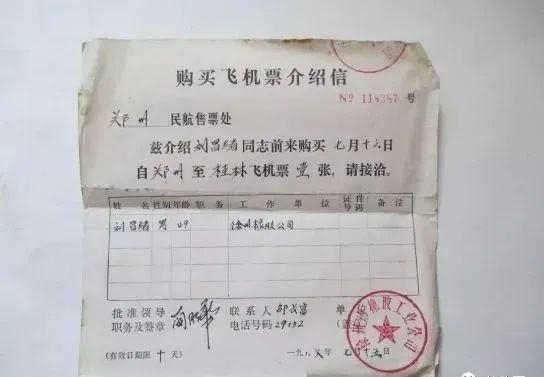 购买飞机票介绍信
№ 118387 号
郑州 民航售票处
兹介绍刘昌绪同志前来购买七月十六日
自郑州至桂林飞机票壹张，请接洽。
姓名 性别 年龄 职务 工作单位 证件号码 备注
刘昌绪 男 49 徐州橡胶公司
批准领导 联系人 邵长富 单
职务及签章 电话号码 29132
(有效日期限十天) 一九八 年七月十五日
橡胶工业公司